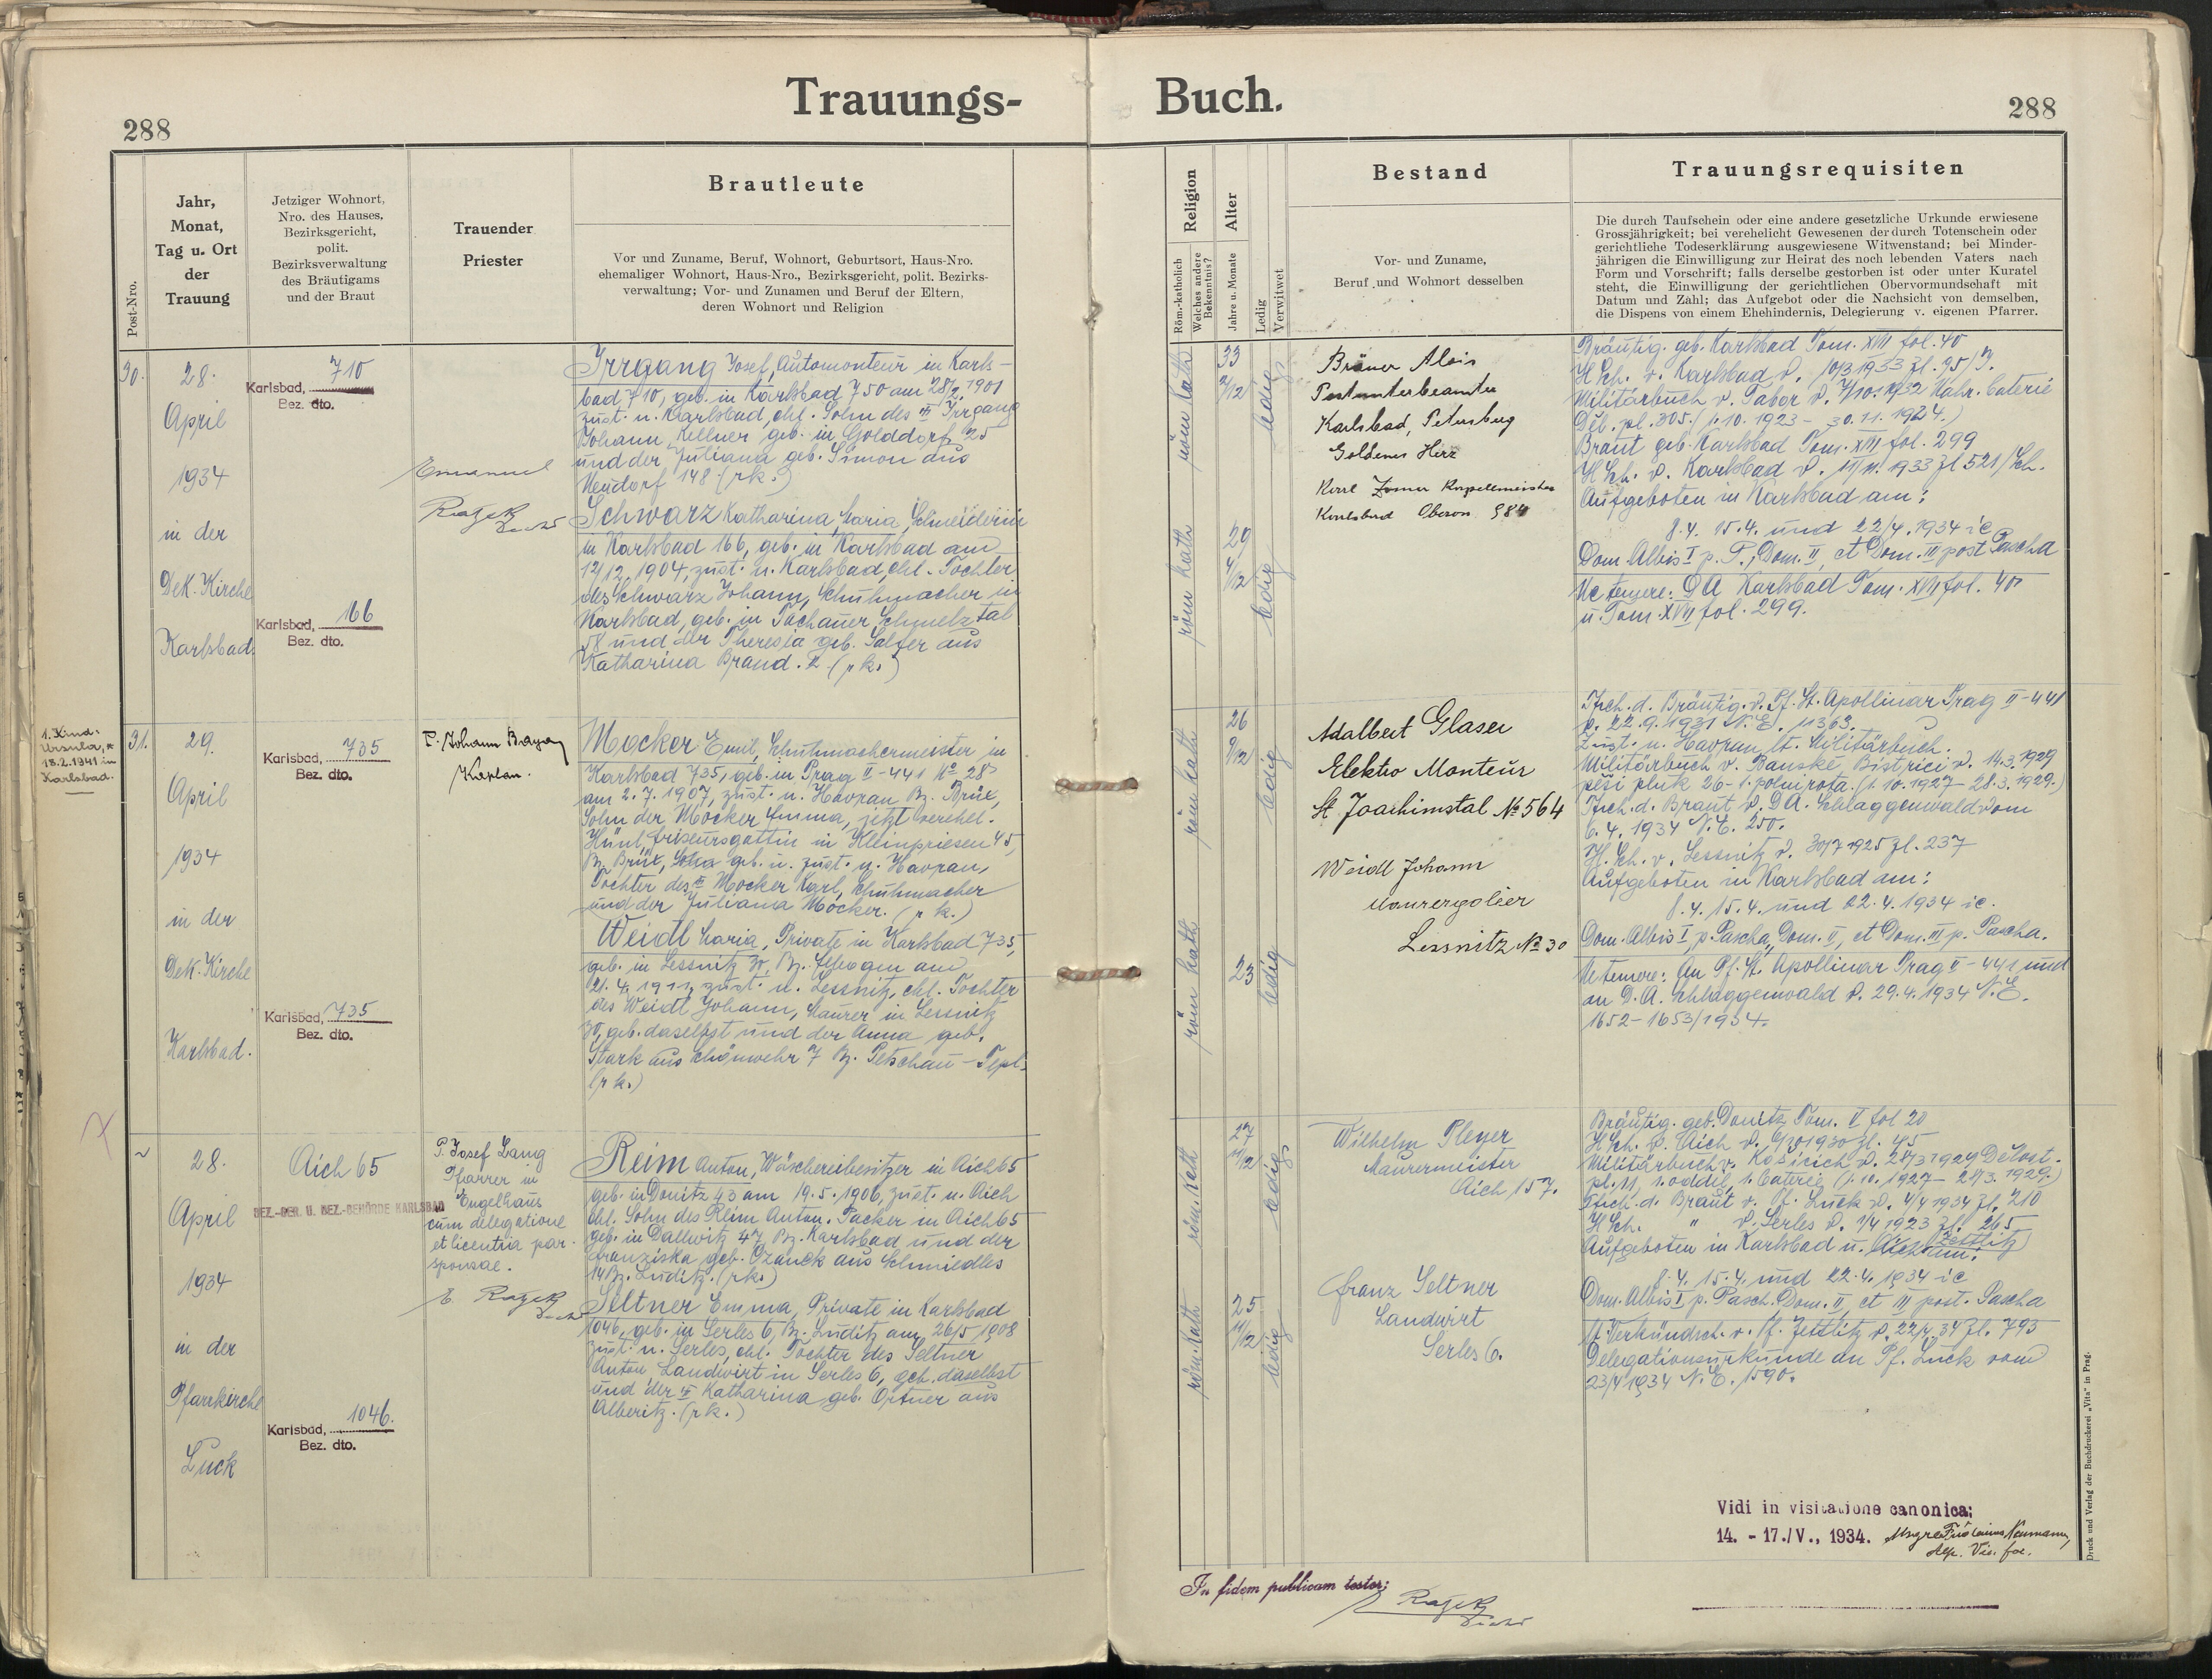 Trauungs-
Buch.
288
288
Post-Nro.
Jahr,
Monat,
Tag u. Ort
der
Trauung
Jetziger Wohnort,
Nro. des Hauses,
Bezirksgericht,
polit.
Bezirksverwaltung
des Bräutigams
und der Braut
Trauender
Priester
Brautleute
Vor und Zuname, Beruf, Wohnort, Geburtsort, Haus-Nro.
ehemaliger Wohnort, Haus-Nro., Bezirksgericht, polit. Bezirks-
verwaltung; Vor- und Zunamen und Beruf der Eltern,
deren Wohnort und Religion
Religion
Röm.-katholich
Welches andere
Bekenntnis?
Alter
Jahre u. Monate
Ledig
Verwitwet
Bestand
Vor- und Zuname,
Beruf und Wohnort desselben
Trauungsrequisiten
Die durch Taufschein oder eine andere gesetzliche Urkunde erwiesene
Grossjährigkeit; bei verehelicht Gewesenen der durch Totenschein oder
gerichtliche Todeserklärung ausgewiesene Witwenstand; bei Minder-
jährigen die Einwilligung zur Heirat des noch lebenden Vaters nach
Form und Vorschrift; falls derselbe gestorben ist oder unter Kuratel
steht, die Einwilligung der gerichtlichen Obervormundschaft mit
Datum und Zahl; das Aufgebot oder die Nachsicht von demselben,
die Dispens von einem Ehehindernis, Delegierung v. eigenen Pfarrer.
30.
28.
April
1934
in der
Dek. Kirche
Karlsbad.
Karlsbad, 710
Bez. dto.
Karlsbad, 166
Bez. dto.
Emanuel
Irrgang Josef, Automonteur in Karls-
bad 710, geb. in Karlsbad 750 am 28/2. 1901
zust. n. Karlsbad, ehl. Sohn des Irrgang
Johann, Kellner geb. in Golddorf 25
und der Juliana geb. Simon aus
Neudorf 148 (rk.)
Schwarz Katharina, Maria, Schneiderin
in Karlsbad 166, geb. in Karlsbad am
12/12. 1904, zust. n. Karlsbad, ehl. Tochter
des Schwarz Johann, Schuhmacher in
Karlsbad, geb. in Tachauer Schmelztal
58 und der Theresia geb. Salfer aus
Katharina Brand. 2. (rk.)
röm kath
33
2/12
ledig
röm kath
29
4/12
ledig
Bräuer Alois
Postunterbeamter
Karlsbad, Petersberg
Goldenes Herz
Karl Kapellmeister
Karlsbad Oberon 984
Bräutig. geb. Karlsbad Tom. XVII fol. 40
H Sch. v. Karlsbad d. 10/3 1933 Zl. 95/J.
Militärbuch v. Tabor d. 7/10. 1932 Nahr. baterie
Děl. pl. 305. (1. 10. 1923 - 30. 11. 1924.)
Braut geb. Karlsbad Tom. XVII fol. 299
H Sch. v. Karlsbad d. 1933 Zl 521/Sch.
Aufgeboten in Karlsbad am:
8.4. 15.4. und 22/4. 1934 ie
Dom. Albis I p. P., Dom. II, et Dom. III post Pascha
Ne temere: DA Karlsbad Tom. XVII fol. 40
u. Tom. XVII fol. 299.
1. Kind:
Ursula, *
18.2.1941 in
Karlsbad.
31.
29.
April
1934
in der
Dek. Kirche
Karlsbad.
Karlsbad, 735
Bez. dto.
Karlsbad, 735
Bez. dto.
P. Johann
Kaplan.
Mocker Emil, Schuhmachermeister in
Karlsbad 735, geb. in Prag II-441 No 28
am 2. 7. 1907, zust. n. Havran Bz. Brüx,
Sohn der Mocker Emma, jetzt verehel.
Friseursgattin in Kleinpriesen 45,
Bz. Brüx, geb. u. zust. n. Havran,
Tochter des Mocker Karl, Schuhmacher
und der Juliana Mocker. (rk.)
Weidl Maria, Private in Karlsbad 735,
geb. in Lessnitz 30, Bz. Elbogen am
21. 4. 1911, zust. n. Lessnitz, ehl. Tochter
des Weidl Johann, Maurer in Lessnitz
30, geb. daselbst und der Anna geb.
Stark aus Schönwehr 7 Bz. Petschau - Tepl.
(rk.)
röm kath
26
9/12
ledig
röm kath
23
ledig
Adalbert Glaser
Elektro Monteur
St Joachimstal No 564
Weidl Johann
Maurerpolier
Lessnitz No 30
Tsch. d. Bräutig. v. Pf. St. Apollinar Prag II-441
v. 22. 9. 1931 N.E. 11363.
Zust. n. Havran lt. Militärbuch.
Militärbuch v. Banské Bistrici d. 14.3.1929
pěší pluk 26 - 1. polní rota. (1. 10. 1927 - 28. 3. 1929.)
Tsch. d. Braut v. DA. Schlaggenwald vom
6. 4. 1934 N.E. 250.
H. Sch. v. Lessnitz d. 30/7 1925 Zl. 237
Aufgeboten in Karlsbad am:
8.4. 15.4. und 22.4. 1934 ie.
Dom. Albis I p. Pascha, Dom. II, et Dom. III p. Pascha.
Ne temere: An Pf. St. Apollinar Prag II-441 und
an D. A. Schlaggenwald d. 29.4.1934 N.E.
1652-1653/1934.
28.
April
1934
in der
Pfarrkirche
Luck
Aich 65
BEZ.-GER. U. BEZ.-BEHÖRDE KARLSBAD
Karlsbad, 1046.
Bez. dto.
P. Josef Lang
Pfarrer in
Engelhaus
cum delegatione
et licentia par.
sponsae.
Reim Anton, Wäschereibesitzer in Aich 65
geb. in Donitz 43 am 19. 5. 1906, zust. n. Aich
ehl. Sohn des Reim Anton, Packer in Aich 65
geb. in Dallwitz 47, Bz. Karlsbad und der
Franziska geb. Czanek aus Schmiedles
14 Bz. Luditz. (rk.)
Seltner Emma, Private in Karlsbad
1046, geb. in Serles 6, Bz. Luditz am 26/5 1908
zust. n. Serles, ehl. Tochter des Seltner
Anton Landwirt in Serles 6, geb. daselbst
und der Katharina geb. Ortner aus
Alberitz. (rk.)
röm. kath
27
11/12
ledig
röm. kath
25
11/12
ledig
Wilhelm Pleyer
Maurermeister
Aich 157.
Franz Seltner
Landwirt
Serles 6.
Bräutig. geb. Donitz Tom. V fol 20
H Sch. v. Aich d. 1930 Zl. 45
Militärbuch v. d. 28/3 1929 Dělost.
pl. 11, 1. oddíl, 1. baterie (1. 10. 1927 - 28/3. 1929.)
Tsch. d. Braut v. Pf. Luck d. 4/4 1934 Zl. 210
H Sch. " v. Serles d. 1/4 1923 Zl. 265
Aufgeboten in Karlsbad u. Zettlitz am:
8.4. 15.4. und 22.4. 1934 ie
Dom. Albis I p. Pasch. Dom. II, et III post. Pascha
lt. Verkündsch. v. Pf. Zettlitz d. 22/4. 34 Zl. 793
Delegationsurkunde an Pf. Luck vom
23/4 1934 N.E. 1590.
Vidi in visitatione canonica:
14. - 17./V., 1934.
In fidem publicam testor:
Druck und Verlag der Buchdruckerei „Vita" in Prag.